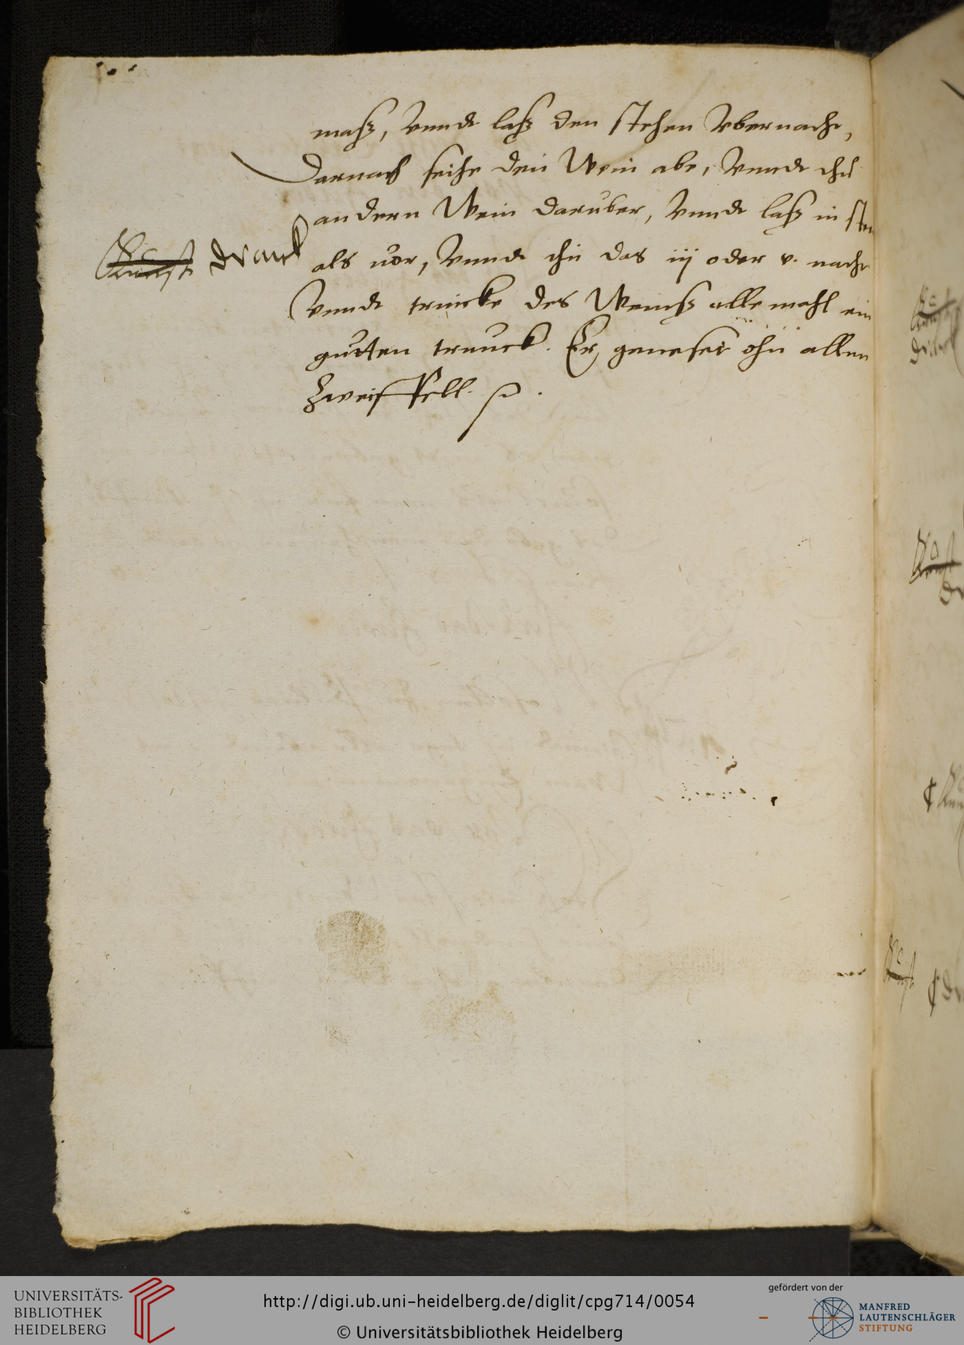 maß, vnnd laß den stehen vbernacht,
Darnach seihe den Wein abe, vnnd thu
andern Wein daruber, vnnd laß in sten
als vor, vnnd thu das iij oder v. nacht
Vnnd trincke des Weinß alle mahl ein
gutten trunck. Er geneset ohn allen
Zweiffell.
UNIVERSITÄTS-
BIBLIOTHEK
HEIDELBERG
http://digi.ub.uni-heidelberg.de/diglit/cpg714/0054
© Universitätsbibliothek Heidelberg
gefördert von der
MANFRED
LAUTENSCHLÄGER
STIFTUNG